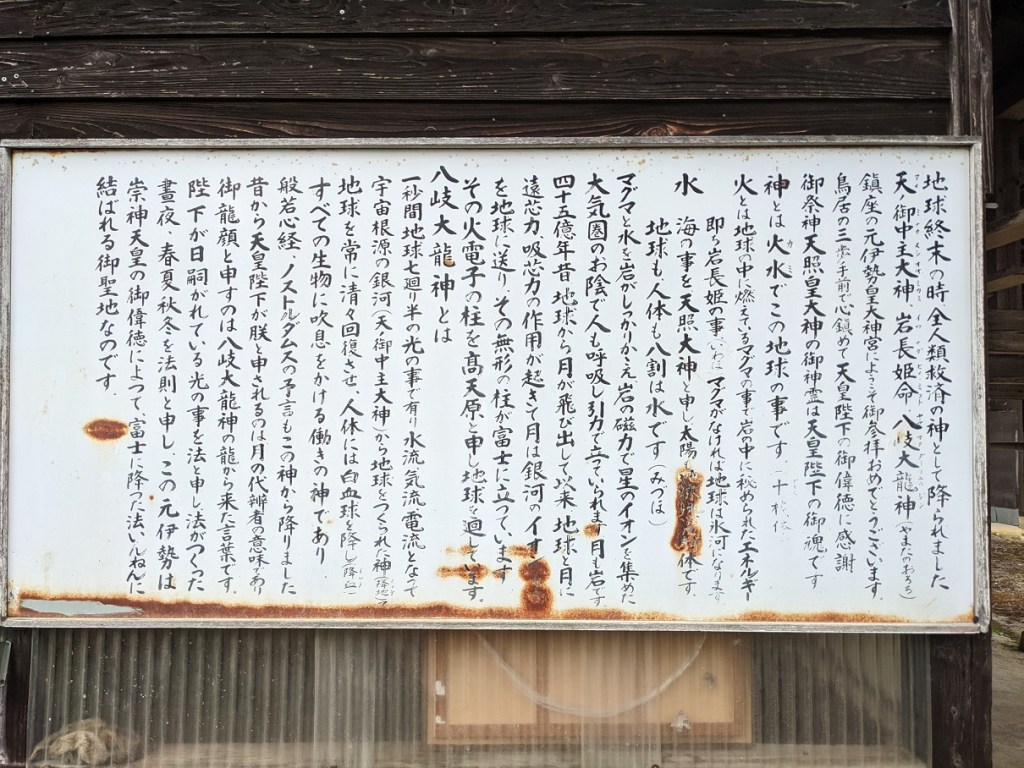 地球終末の時、全人類救済の神として降られました
天ノ御中主大神 岩長姫命 八岐大龍神(やまたのおろち)
鎮座の元伊勢皇大神宮によこそ御参拝おめでとうございます。
鳥居の三歩手前で心鎮めて天皇陛下の御偉徳に感謝
御祭神天照皇大神の御神霊は天皇陛下の御魂です
神とは火水でこの地球の事です。
火とは地球の中に燃えているマグマの事で岩の中に秘められたエネルギー
即ち岩長姫の事、マグマがなければ地球は氷河になります
水 海の事を天照大神と申し太陽 体です
地球も人体も八割は水です(みづは)
マグマと水を岩がしっかりかゝえ岩の磁力で星のイオンを集めた
大気圏のお陰で人も呼吸し引力で立っていられます月も岩です
四十五億年昔地球から月が飛び出して以来地球と月に
遠芯力、吸芯力の作用が起きて月は銀河のイオン
を地球に送り、その無形の柱が富士に立っています
その火電子の柱を髙天原と申し地球を廻しています。
八岐大龍神とは
一秒間地球七廻り半の光の事で有り水流気流電流となって
宇宙根源の銀河(天ノ御中主大神)から地球をつくられた神
地球を常に清々回復させ、人体には白血球を降し
すべての生物に吹息をかける働きの神であり
般若心経、ノストルダムスの予言もこの神から降りました
昔から天皇陛下が朕と申されるのは月の代辨者の意味であり
御龍顔と申すのは八岐大龍神の龍から来た言葉です。
陛下が日嗣がれている光の事を法と申し、法がつくった
晝夜、春夏秋冬を法則と申し、この元伊勢は
崇神天皇の御偉徳によって、富士に降った法いんねんに
結ばれる御聖地なのです。